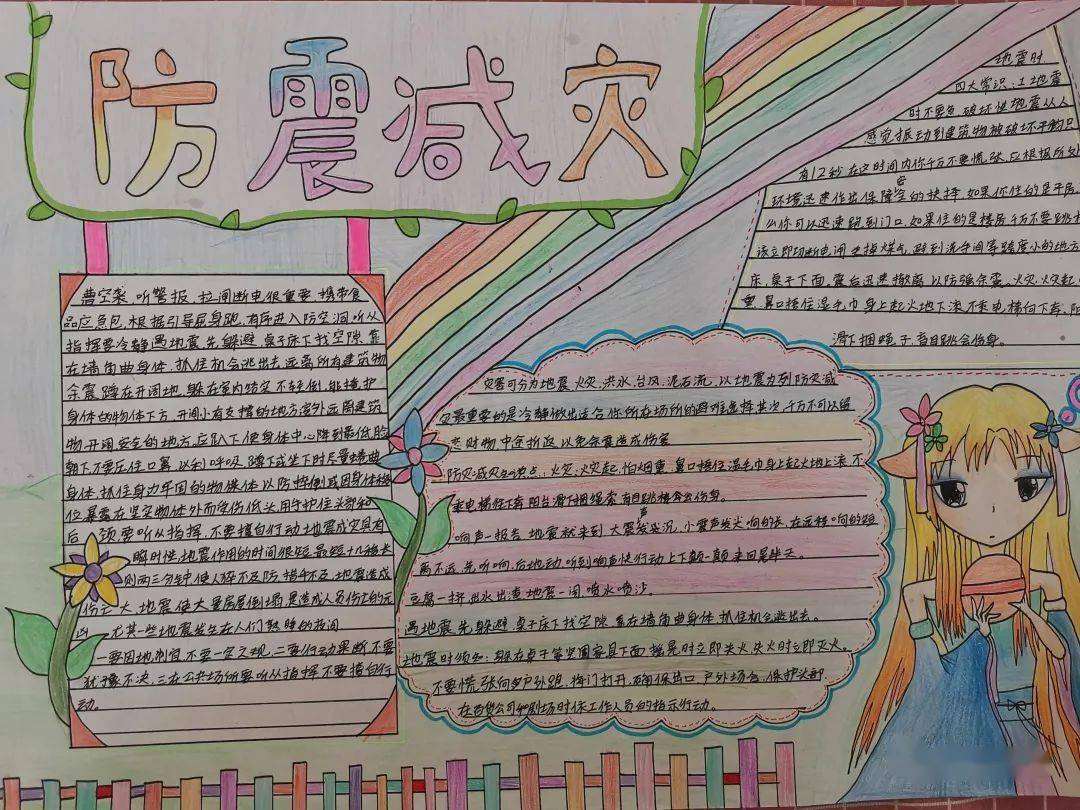 防震减灾
曹空袭,听警报,拉闸断电很重要,携带食
品应急包,根据引导屈身跑,有序进入防空洞,听从
指挥要冷静遇地震,先躲避,桌子床下找空隙,靠
在墙角曲身体,抓住机会逃出去,远离所有建筑物
余震蹲在开阔地,躲在室内结实不轻倒,能掩护
身体的物体下方,开间小有支撑的地方室外远离建筑
物,开阔安全的地方,应趴下使身体中心降到最低,脸
朝下不要压住口鼻,以利呼吸,蹲下或坐下时尽量蜷曲
身体,抓住身边牢固的物体以防摔倒或因身体移
位暴露在坚实物体外而受伤,低头,用手护住头部和
后颈,要听从指挥,不要擅自行动,地震成灾具有
瞬时性,地震作用的时间很短,最短十几秒,长
则两三分钟使人猝不及防,措手不及,地震造成
伤亡大,地震使大量房屋倒塌,是造成人员伤亡的元
凶,尤其一些地震发生在人们熟睡的夜间
一要因地制宜,不要一定之规,二要行动果断,不要
犹豫不决,三在公共场所要听从指挥,不要擅自行
动。
地震时
四大常识:1.地震
时不要急,破坏性地震从人
感觉振动到建筑物被破坏平均只
有12秒,在这时间内你千万不要慌张,应根据所处
环境迅速作出保障安全的抉择,如果你住的是平房,
么你可以迅速跑到门口,如果住的是楼房千万不要跳
该立即切断电闸,关掉煤气,避到洗手间等跨度小的地方
床,桌子下面,震后迅速撤离,以防强余震,火灾,火灾起,
重,鼻口捂住湿毛巾,身上起火地下滚,不乘电梯向下奔,阳
滑下捆绳子,盲目跳会伤身。
灾害可分为地震,火灾,洪水,台风,泥石流,以地震为列防灾减
灾最重要的是冷静做出适合你所在场所的避难选择其次,千万不可以留
恋财物,中途折返,以免余震造成伤害
防灾减灾知识点:火灾:火灾起,怕烟重,鼻口捂住湿毛巾,身上起火地上滚,不
乘电梯往下奔,阳台滑下捆绳索,盲目跳楼会伤身。
响声一报告,地震就来到,大震声发沉,小震声发尖,响的长,在远程,响的短
离不远,先听响,后地动,听到响声快行动,上下颠一颠,来回晃半天。
豆腐一挤,出水出渣,地震一闹,喷水喷沙。
遇地震,先躲避,桌子床下找空隙,靠在墙角曲身体,抓住机会逃出去。
地震时须知:躲在桌子等坚固家具下面,摇晃时立即关火,失火时立即灭火。
不要慌张向户外跑,将门打开,确保出口,户外场合,保护头部,
在百货公司和剧场时依工作人员的指示行动。